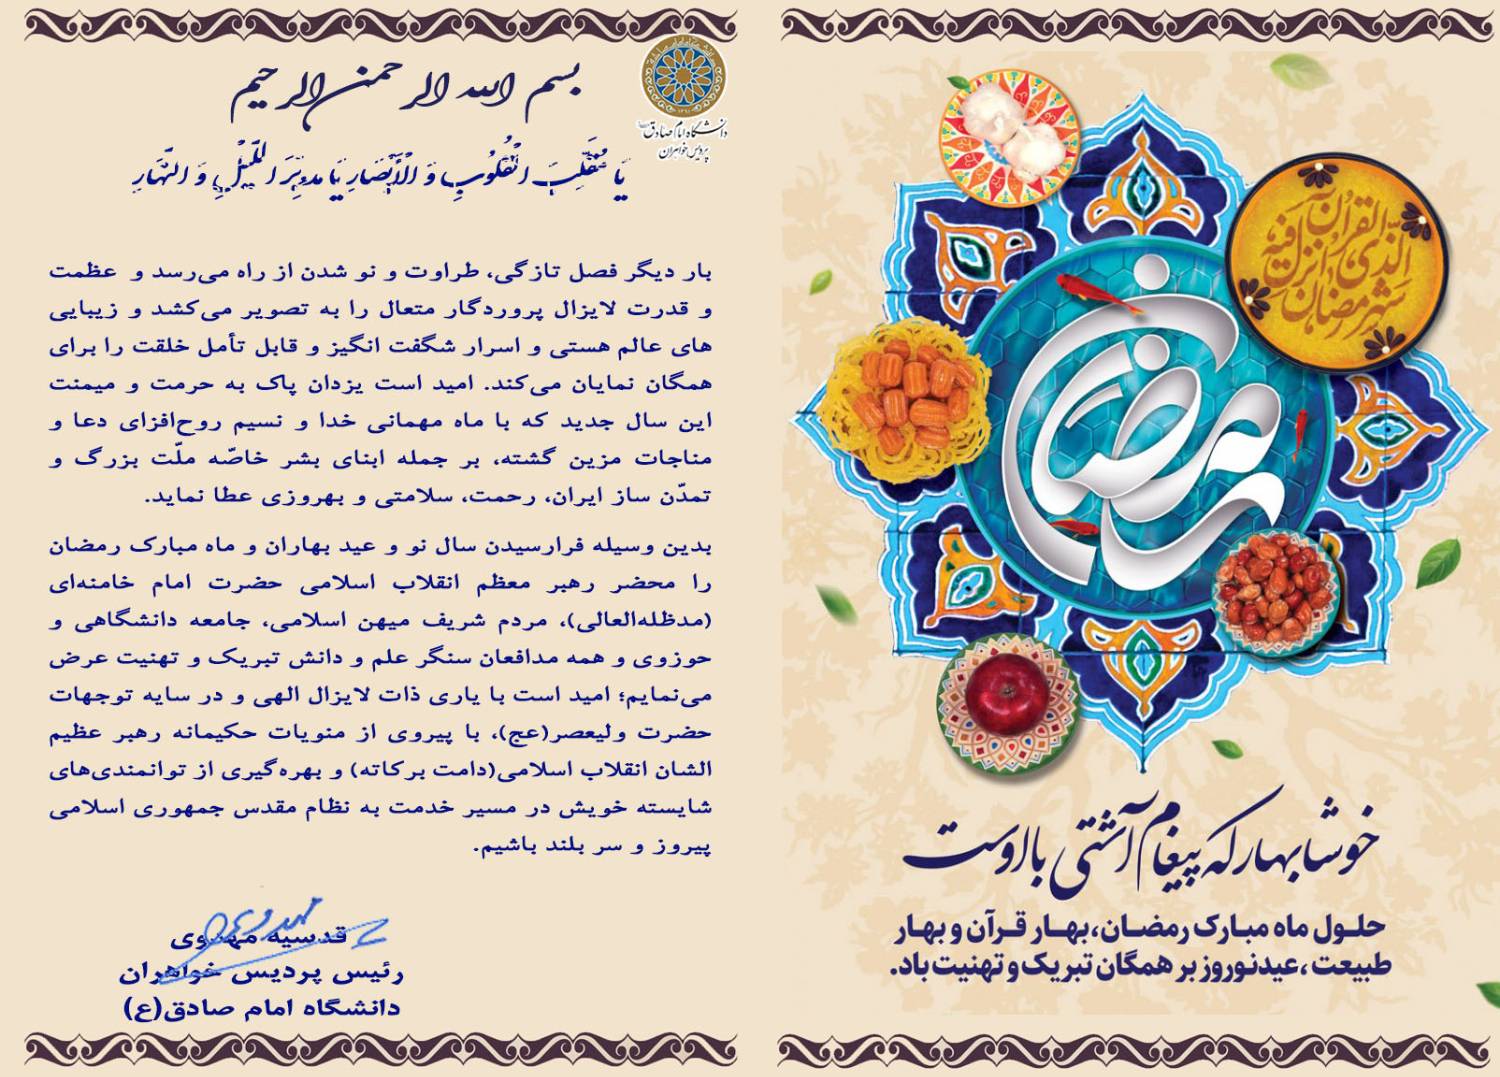 بسم الله الرحمن الرحیم
دانشگاه امام صادق
پردیس خواهران
یا مُقَلِّبَ القُلُوبِ وَ الْأَبْصَارِ یَا مدبِّرَ اللَّیْلِ وَ النَّهَارِ
بار دیگر فصل تازگی، طراوت و نو شدن از راه می‌رسد و عظمت
و قدرت لایزال پروردگار متعال را به تصویر می‌کشد و زیبایی
های عالم هستی و اسرار شگفت انگیز و قابل تأمل خلقت را برای
همگان نمایان می‌کند. امید است یزدان پاک به حرمت و میمنت
این سال جدید که با ماه مهمانی خدا و نسیم روح‌افزای دعا و
مناجات مزین گشته، بر جمله ابنای بشر خاصّه ملّت بزرگ و
تمدّن ساز ایران، رحمت، سلامتی و بهروزی عطا نماید.
بدین وسیله فرارسیدن سال نو و عید بهاران و ماه مبارک رمضان
را محضر رهبر معظم انقلاب اسلامی حضرت امام خامنه‌ای
(مدظله‌العالی)، مردم شریف میهن اسلامی، جامعه دانشگاهی و
حوزوی و همه مدافعان سنگر علم و دانش تبریک و تهنیت عرض
می‌نمایم؛ امید است با یاری ذات لایزال الهی و در سایه توجهات
حضرت ولیعصر(عج)، با پیروی از منویات حکیمانه رهبر عظیم
الشان انقلاب اسلامی(دامت برکاته) و بهره‌گیری از توانمندی‌های
شایسته خویش در مسیر خدمت به نظام مقدس جمهوری اسلامی
پیروز و سر بلند باشیم.
قدسیه مهدوی
رئیس پردیس خواهران
دانشگاه امام صادق(ع)
شهر رمضان الّذی انزل فیه القرآن
بهار رمضان
خوشا بهار که پیغام آشتی با اوست
حلول ماه مبارک رمضان، بهار قرآن و بهار
طبیعت ،عیدنوروز بر همگان تبریک و تهنیت باد.